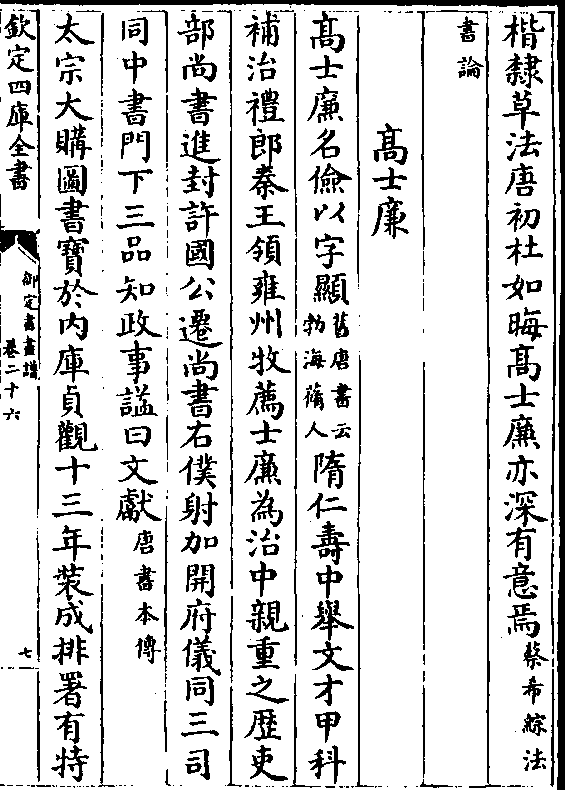 楷隸草法唐初杜如晦髙士廉亦深有意焉蔡希綜法
書論
髙士廉
髙士廉名儉以字顯舊唐書云勃海蓨人隋仁壽中舉文才甲科
補治禮郎秦王領雍州牧薦士廉為治中親重之歴吏
部尚書進封許國公遷尚書右僕射加開府儀同三司
同中書門下三品知政事諡曰文獻唐書本傳
太宗大購圖書寶於内庫貞觀十三年裝成排署有特
欽定四庫全書
御定書畫譜
卷二十六
七